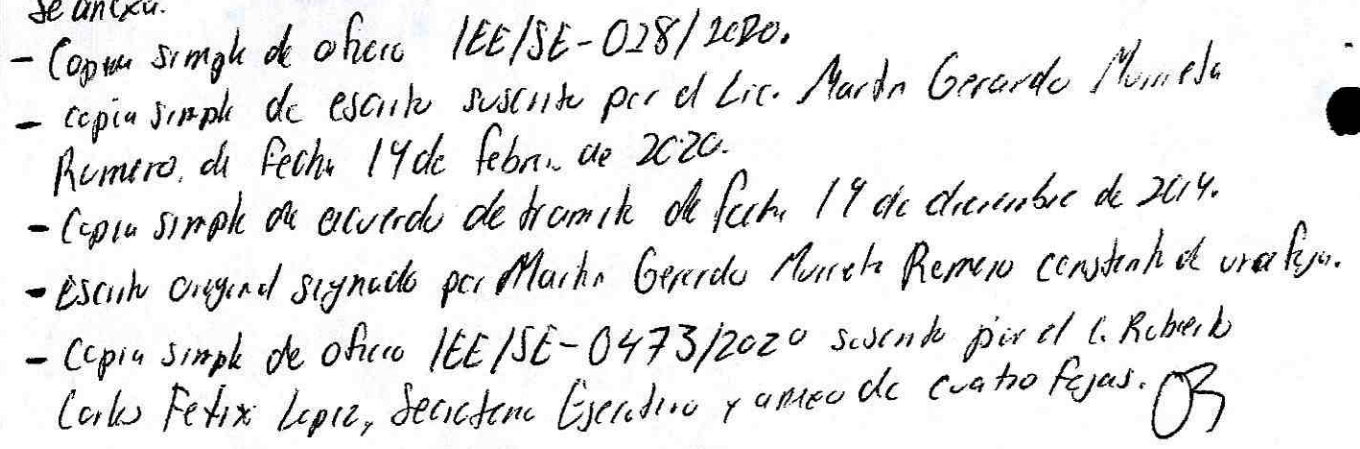 Se anexa:
- Copia simple de oficio IEE/SE-028/2020.
- copia simple de escrito suscrito por el Lic. Martín Gerardo Murrieta
Romero, de fecha 14 de febrero de 2020.
- Copia simple de acuerdo de tramite de fecha 19 de diciembre de 2019.
- Escrito original signado por Martín Gerardo Murrieta Romero constante de una foja.
- Copia simple de oficio IEE/SE-0473/2020 suscrito por el C. Roberto
Carlos Felix Lopez, Secretario Ejecutivo y anexo de cuatro fojas.